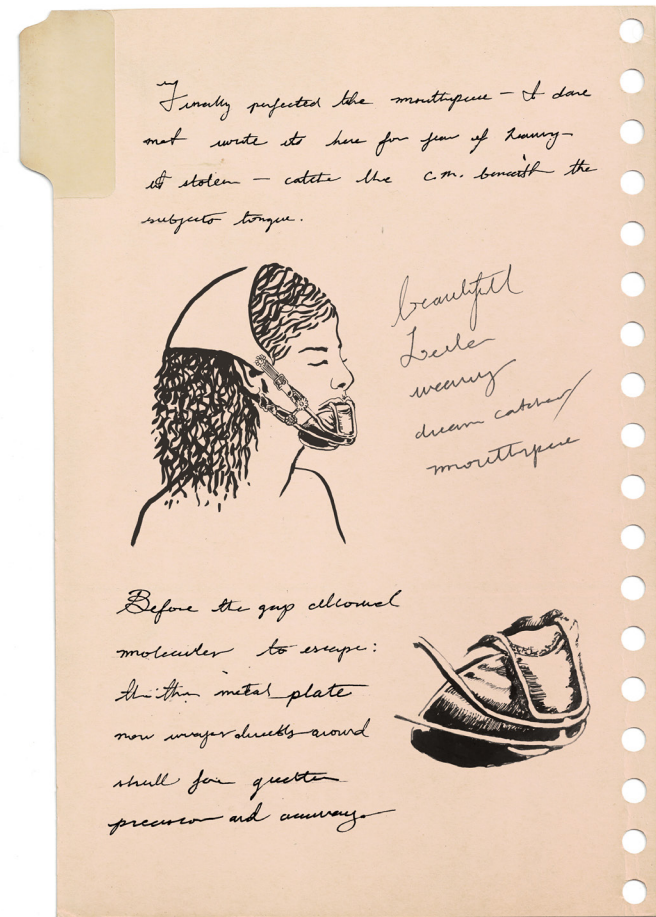 Finally perfected the mouthpiece – I dare
not write its here for fear of having
it stolen – catche the c.m. beneath the
subjects tongue.
beautiful
wearing
dream catcher
mouthpiece
Before the gap allowed
molecules to escape:
the thin metal plate
now wraps directly around
skull for greater
precision and accuracy